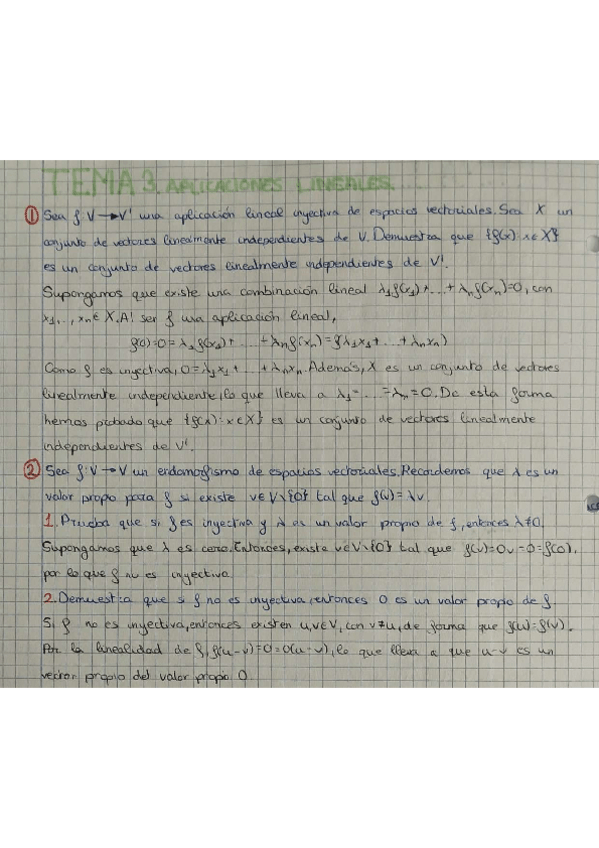 TEMA 3. APLICACIONES LINEALES.
① Sea f: V→V' una aplicación lineal inyectiva de espacios vectoriales. Sea X un
conjunto de vectores linealmente independientes de V. Demuestra que {f(x) x∈X}
es un conjunto de vectores linealmente independientes de V'.
Supongamos que existe una combinación lineal λ₁f(x₁)+...+λₙf(xₙ)=0, con
x₁,..,xₙ∈X. Al ser f una aplicación lineal,
f(0)=0=λ₁f(x₁)+ ... +λₙf(xₙ)=f(λ₁x₁+...+λₙxₙ)
Como f es inyectiva, 0=λ₁x₁+ ... +λₙxₙ. Además, X es un conjunto de vectores
linealmente independiente, lo que lleva a λ₁=...=λₙ=0. De esta forma
hemos probado que {f(x): x∈X} es un conjunto de vectores linealmente
independientes de V'.
② Sea f: V→V un endomorfismo de espacios vectoriales. Recordemos que λ es un
valor propio para f si existe v∈V\{0} tal que f(v)=λv.
1. Prueba que si f es inyectiva y λ es un valor propio de f, entonces λ≠0.
Supongamos que λ es cero. Entonces, existe v∈V\{0} tal que f(v)=0v=0=f(0),
por lo que f no es inyectiva.
2. Demuestra que si f no es inyectiva, entonces 0 es un valor propio de f
Si f no es inyectiva, entonces existen u,v∈V, con v≠u, de forma que f(u)=f(v).
Por la linealidad de f, f(u-v)=0=0(u-v), lo que lleva a que u-v es un
vector propio del valor propio 0.